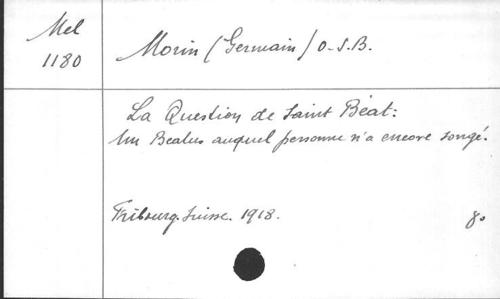 Mel
1180
Morin (Germain) O.S.B.
La Question de Saint Béat:
Un Beatus auquel personne n'a encore songé.
Fribourg. Suisse. 1918. 8°